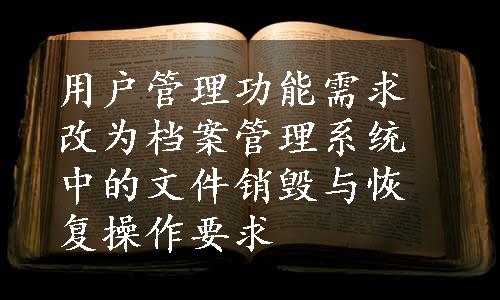 用户管理功能需求
改为档案管理系统
中的文件销毁与恢
复操作要求